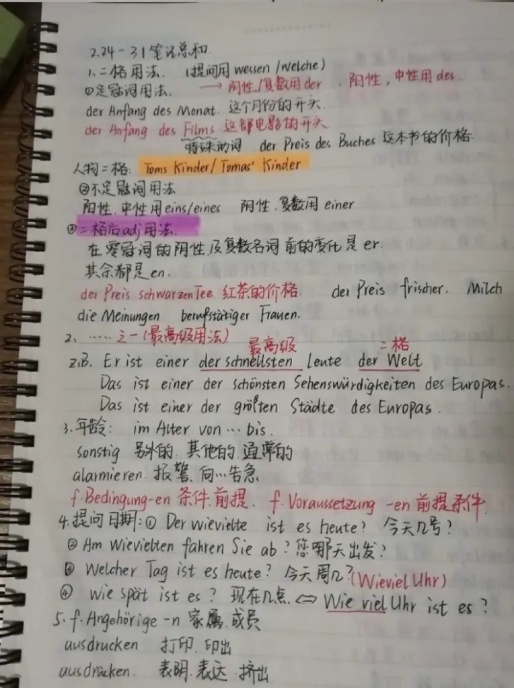 2.24-31笔记总和.
1.二格用法. (提问用 wessen / welche)
①定冠词用法. → 阴性/复数用 der. 阳性,中性用 des.
der Anfang des Monat. 这个月份的开头
der Anfang des Films 这部电影的开头
特殊的词 der Preis des Buches 这本书的价格
人物二格: Toms Kinder/ Tomas' Kinder
②不定冠词用法
阳性.中性用 eins/eines 阴性.复数用 einer
③二格后adj用法.
在零冠词的阴性及复数名词前的变化是 er.
其余都是en.
der Preis schwarzen Tee 红茶的价格. der Preis frischer. Milch
die Meinungen berufstätiger Frauen.
2. ……之一(最高级用法) 最高级 二格
z.B. Er ist einer der schnellsten Leute der Welt
Das ist einer der schönsten Sehenswürdigkeiten des Europas.
Das ist einer der größten Städte des Europas.
3.年龄: im Alter von … bis.
sonstig 另外的.其他的.通常的
alarmieren 报警.向…告急
f.Bedingung-en 条件.前提. f. Voraussetzung -en 前提条件
4.提问日期:① Der wievielte ist es heute? 今天几号?
② Am Wievielten fahren Sie ab? 您哪天出发?
③ Welcher Tag ist es heute? 今天周几? (Wieviel Uhr)
④ Wie spät ist es? 现在几点 ⇔ Wie viel Uhr ist es?
5.f.Angehörige -n 家属.成员
ausdrucken 打印.印出
ausdrücken. 表明.表达.挤出